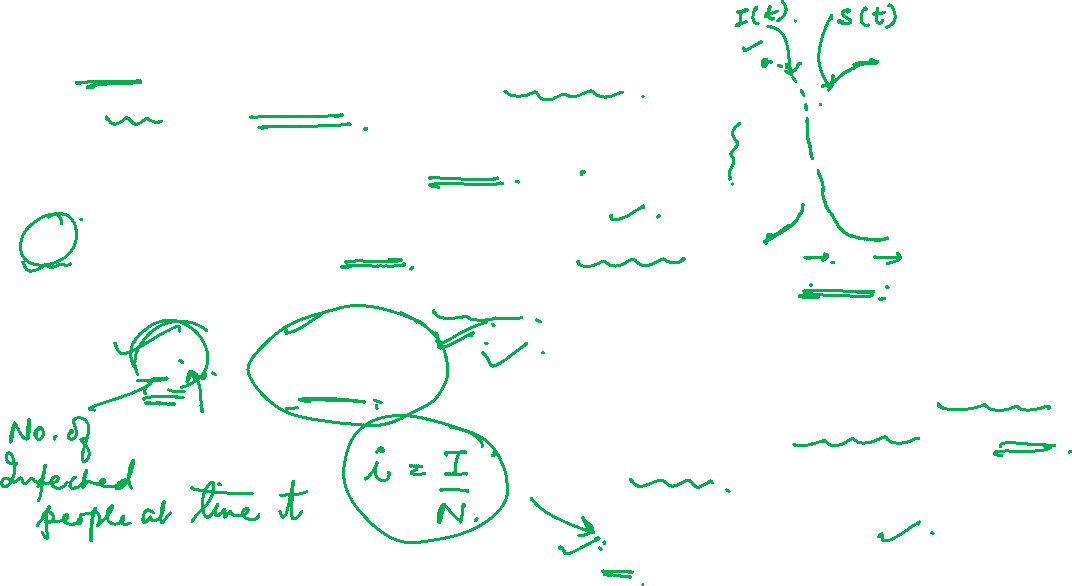 I(t). S(t)
i = I/N.
No. of
Infected
people at time t